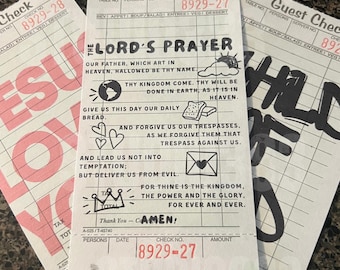 Check
8929-28
JESU
LOV
YO
8929-27
APPET - SOUP/SALAD - ENTREE - VEG - DESSERT -
THE LORD'S PRAYER
OUR FATHER, WHICH ART IN
HEAVEN, HALLOWED BE THY NAME.
THY KINGDOM COME. THY WILL BE
DONE IN EARTH, AS IT IS IN
HEAVEN.
GIVE US THIS DAY OUR DAILY
BREAD.
AND FORGIVE US OUR TRESPASSES,
AS WE FORGIVE THEM THAT
TRESPASS AGAINST US.
AND LEAD US NOT INTO
TEMPTATION;
BUT DELIVER US FROM EVIL.
FOR THINE IS THE KINGDOM,
THE POWER AND THE GLORY,
FOR EVER AND EVER.
TOTAL
Thank You —
AMEN!
PERSONS
DATE
CHECK NO.
AMOUNT
8929-27
Guest Check
8929-2
HILD
OF